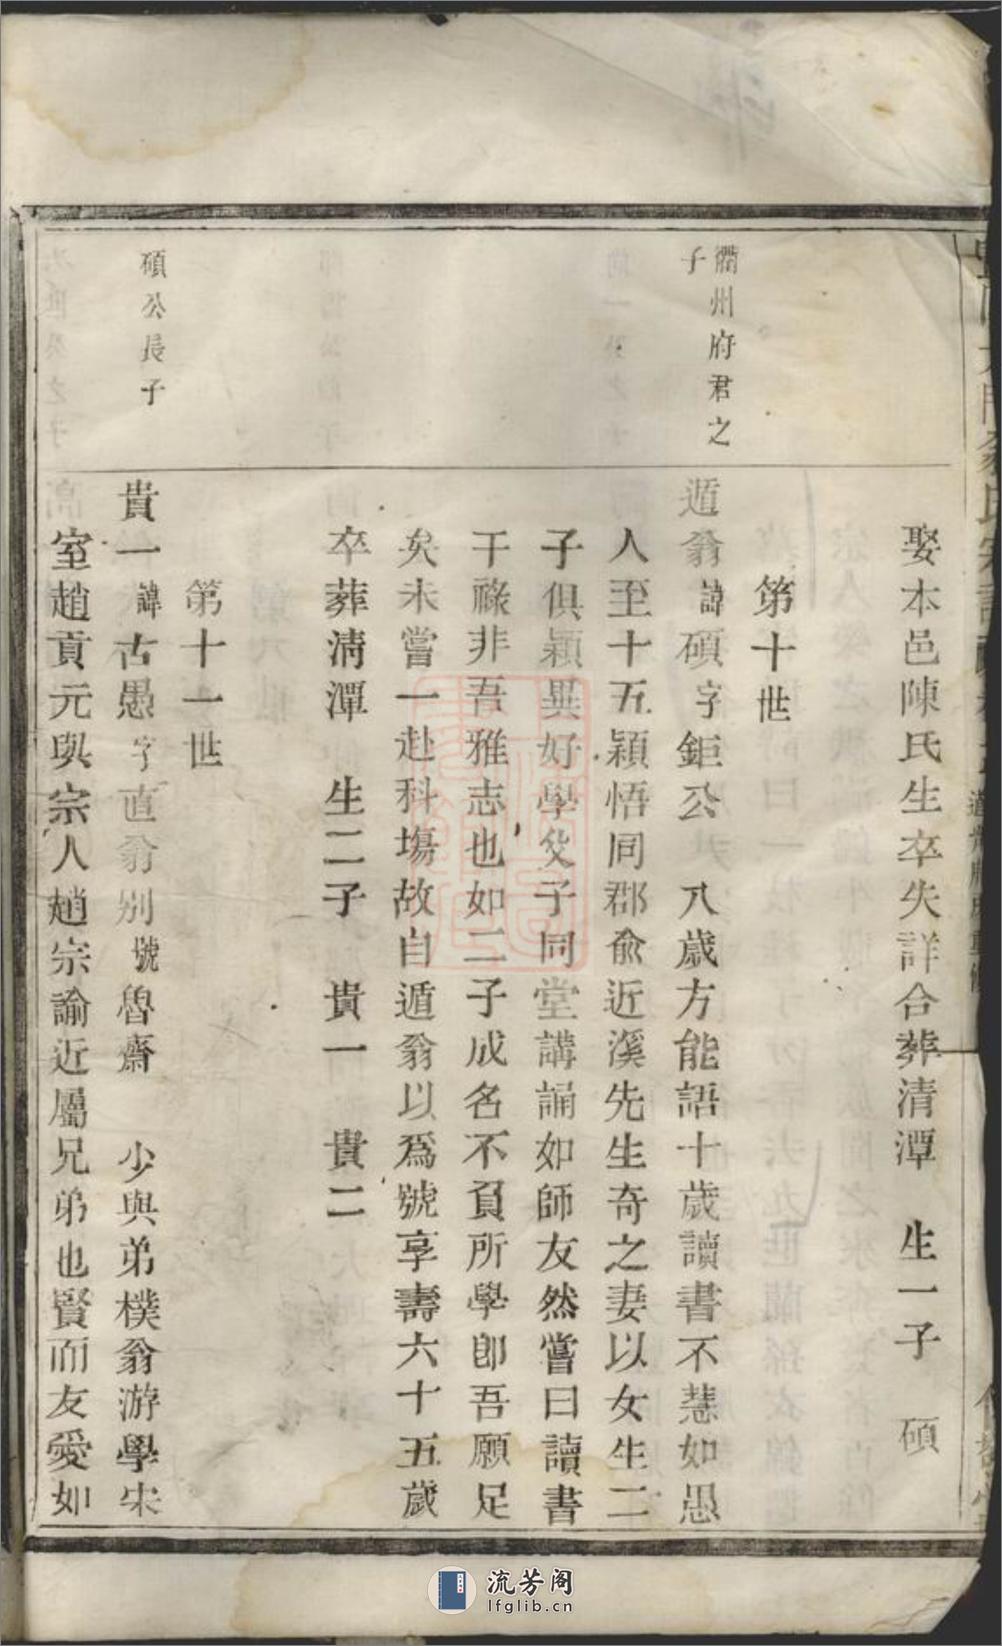 娶本邑陳氏生卒失詳合葬清潭　生一子　碩
第十世
衢州府君之
子
遁翁諱碩字鉅公　八歲方能語十歲讀書不慧如愚
人至十五穎悟同郡俞近溪先生奇之妻以女生二
子俱穎異好學父子同堂講誦如師友然嘗曰讀書
干祿非吾雅志也如二子成名不負所學即吾願足
矣未嘗一赴科塲故自遁翁以爲號享壽六十五歲
卒葬清潭　生二子　貴一　貴二
第十一世
碩公長子
貴一諱古愚字直翁别號魯齋　少與弟樸翁游學宋
室趙貢元與宗人趙宗諭近屬兄弟也賢而友愛如
流芳阁
lfglib.cn